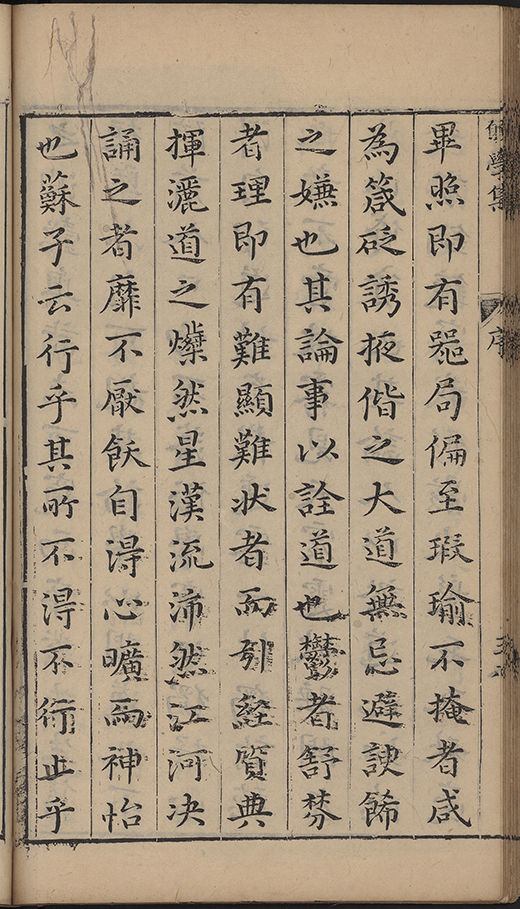 學集 序
畢照即有器局偏至瑕瑜不掩者咸
為箴砭誘掖偕之大道無忌避諛餙
之嫌也其論事以詮道也鬱者舒棼
者理即有難顯難狀者而引經質典
揮灑道之燦然星漢流沛然江河决
誦之者靡不厭飫自淂心曠而神怡
也蘇子云行乎其所不淂不行止乎